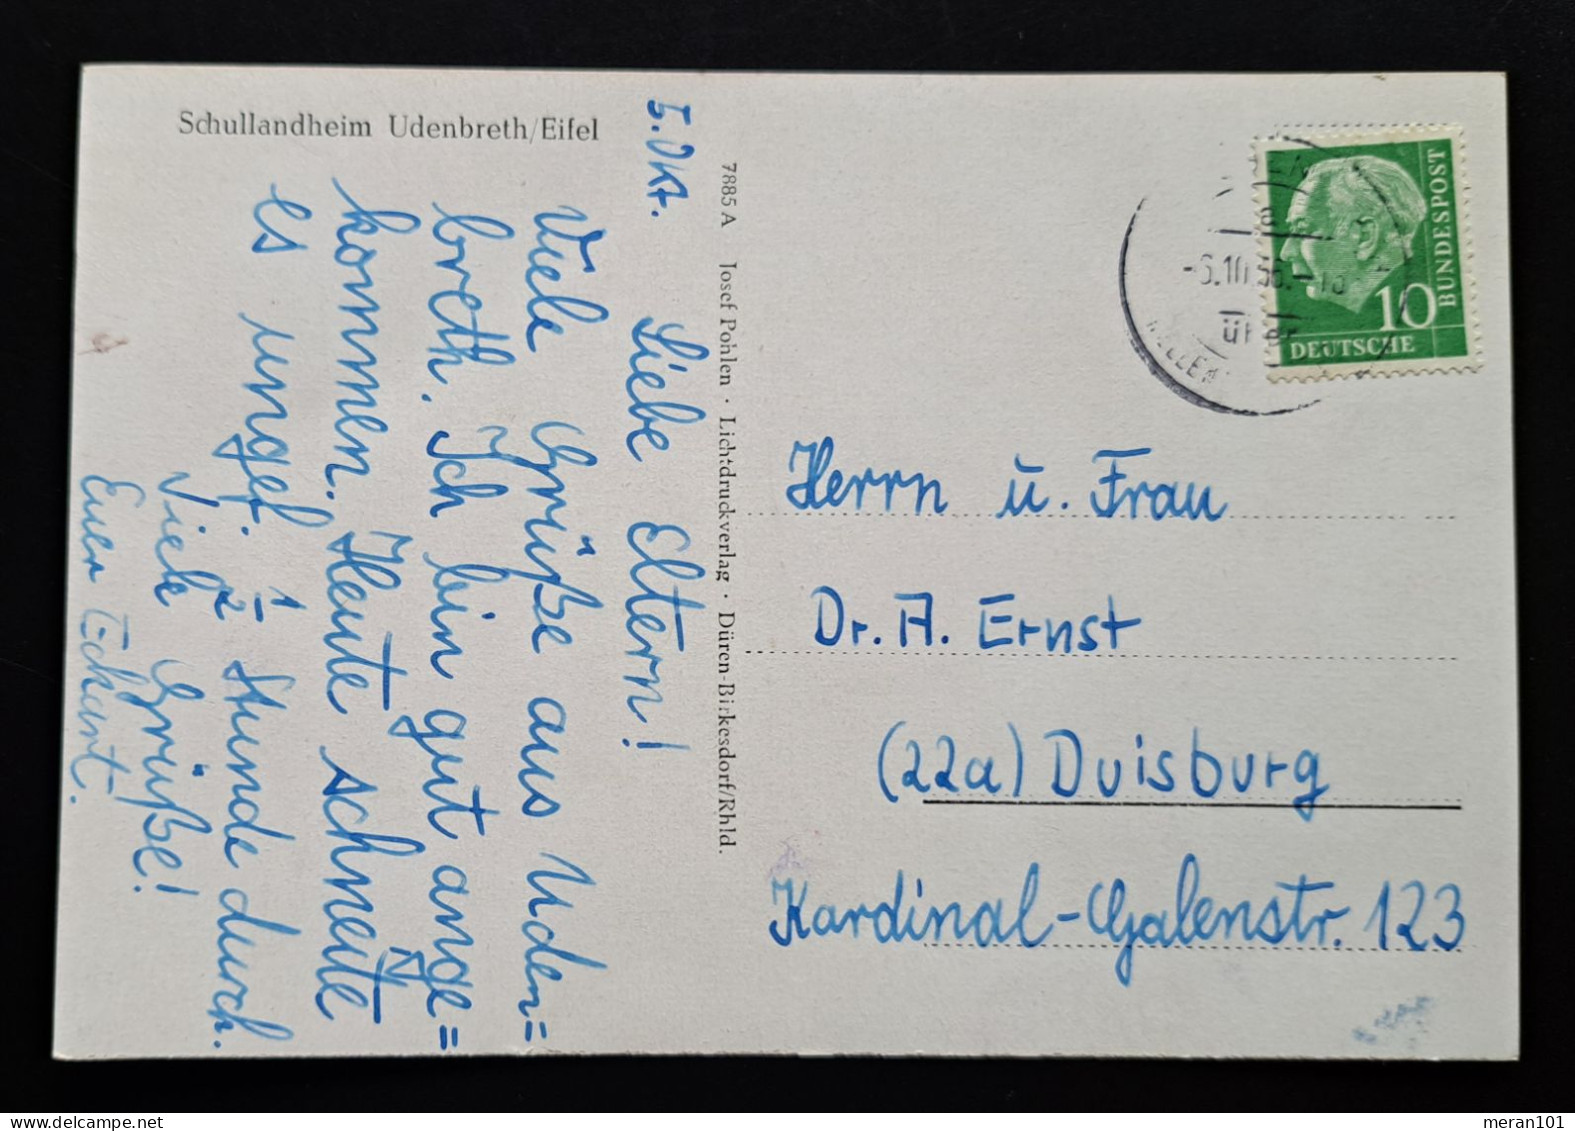 Schullandheim Udenbreth/Eifel
5. Okt.
Liebe Eltern!
Viele Grüße aus Uden=
breth. Ich bin gut ange=
kommen. Heute schneite
es ungef. ½ Stunde durch.
Viele Grüße!
Euer Eckart.
7885 A Josef Pohlen · Lichtdruckverlag · Düren-Birkesdorf/Rhld.
-6.10.56.-18
über
DEUTSCHE
BUNDESPOST
10
Herrn u. Frau
Dr. A. Ernst
(22a) Duisburg
Kardinal-Galenstr. 123
meran101